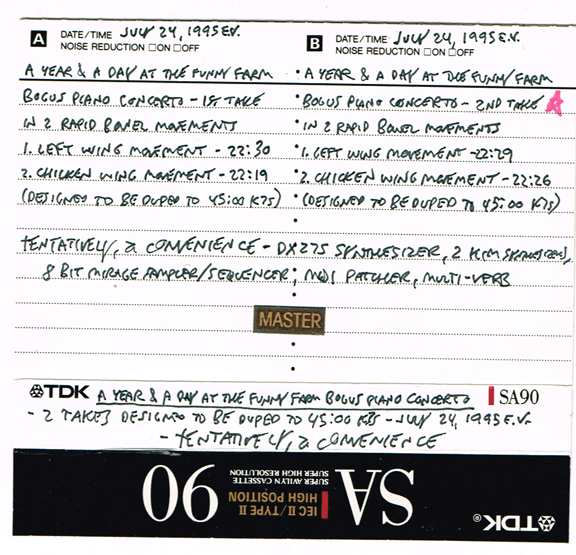 A DATE/TIME JULY 24, 1995 E.V.
NOISE REDUCTION □ON □OFF
A YEAR & A DAY AT THE FUNNY FARM
BOGUS PIANO CONCERTO - 1ST TAKE
IN 2 RAPID BOWEL MOVEMENTS
1. LEFT WING MOVEMENT - 22:30
2. CHICKEN WING MOVEMENT - 22:19
(DESIGNED TO BE DUPED TO 45:00 K7S)
B DATE/TIME JULY 24, 1995 E.V.
NOISE REDUCTION □ON □OFF
• A YEAR & A DAY AT THE FUNNY FARM
• BOGUS PIANO CONCERTO - 2ND TAKE
• IN 2 RAPID BOWEL MOVEMENTS
• 1. LEFT WING MOVEMENT - 22:29
• 2. CHICKEN WING MOVEMENT - 22:26
• (DESIGNED TO BE DUPED TO 45:00 K7S)
TENTATIVELY, A CONVENIENCE - DX27S SYNTHESIZER, 2
8 BIT MIRAGE SAMPLER/SEQUENCER; MIDI PATCHER, MULTI-VERB
MASTER
TDK A YEAR & A DAY AT THE FUNNY FARM BOGUS PIANO CONCERTO SA90
- 2 TAKES DESIGNED TO BE DUPED TO 45:00 K7S - JULY 24, 1995 E.V.
- TENTATIVELY, A CONVENIENCE
TDK®
SA
IEC II/TYPE II
HIGH POSITION
SUPER AVILYN CASSETTE
SUPER HIGH RESOLUTION
90